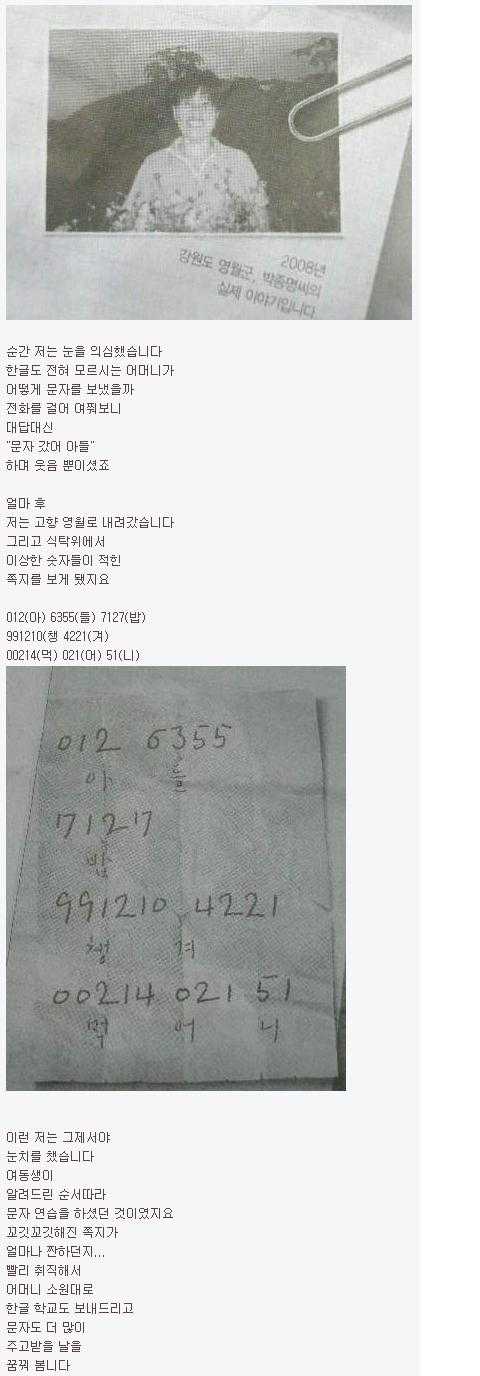 2008년
강원도 영월군, 박종명씨의
실제 이야기입니다
순간 저는 눈을 의심했습니다
한글도 전혀 모르시는 어머니가
어떻게 문자를 보냈을까
전화를 걸어 여쭤보니
대답대신
"문자 갔어 아들"
하며 웃음 뿐이셨죠
얼마 후
저는 고향 영월로 내려갔습니다
그리고 식탁위에서
이상한 숫자들이 적힌
쪽지를 보게 됐지요
012(아) 6355(들) 7127(밥)
991210(챙 4221(겨)
00214(먹) 021(어) 51(니)
012 6355
아 들
7127
밥
991210 4221
챙 겨
00214 021 51
먹 어 니
이런 저는 그제서야
눈치를 챘습니다
여동생이
알려드린 순서따라
문자 연습을 하셨던 것이였지요
꼬깃꼬깃해진 쪽지가
얼마나 짠하던지...
빨리 취직해서
어머니 소원대로
한글 학교도 보내드리고
문자도 더 많이
주고받을 날을
꿈꿔 봅니다